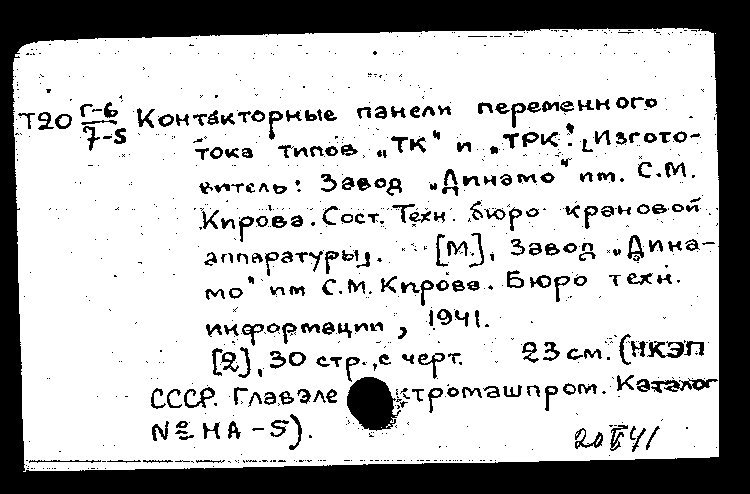 Т20 Г-6/7-5 Контакторные панели переменного
тока типов „ТК" и „ТРК". [Изгото-
витель: Завод „Динамо" им. С.М.
Кирова. Сост. Техн. бюро крановой
аппаратуры]. [М.], Завод „Дина-
мо" им С.М. Кирова. Бюро техн.
информации, 1941.
[2], 30 стр., с черт. 23 см. (НКЭП
СССР. Главэлектромашпром. Каталог
№ НА-5).
20 VI 41